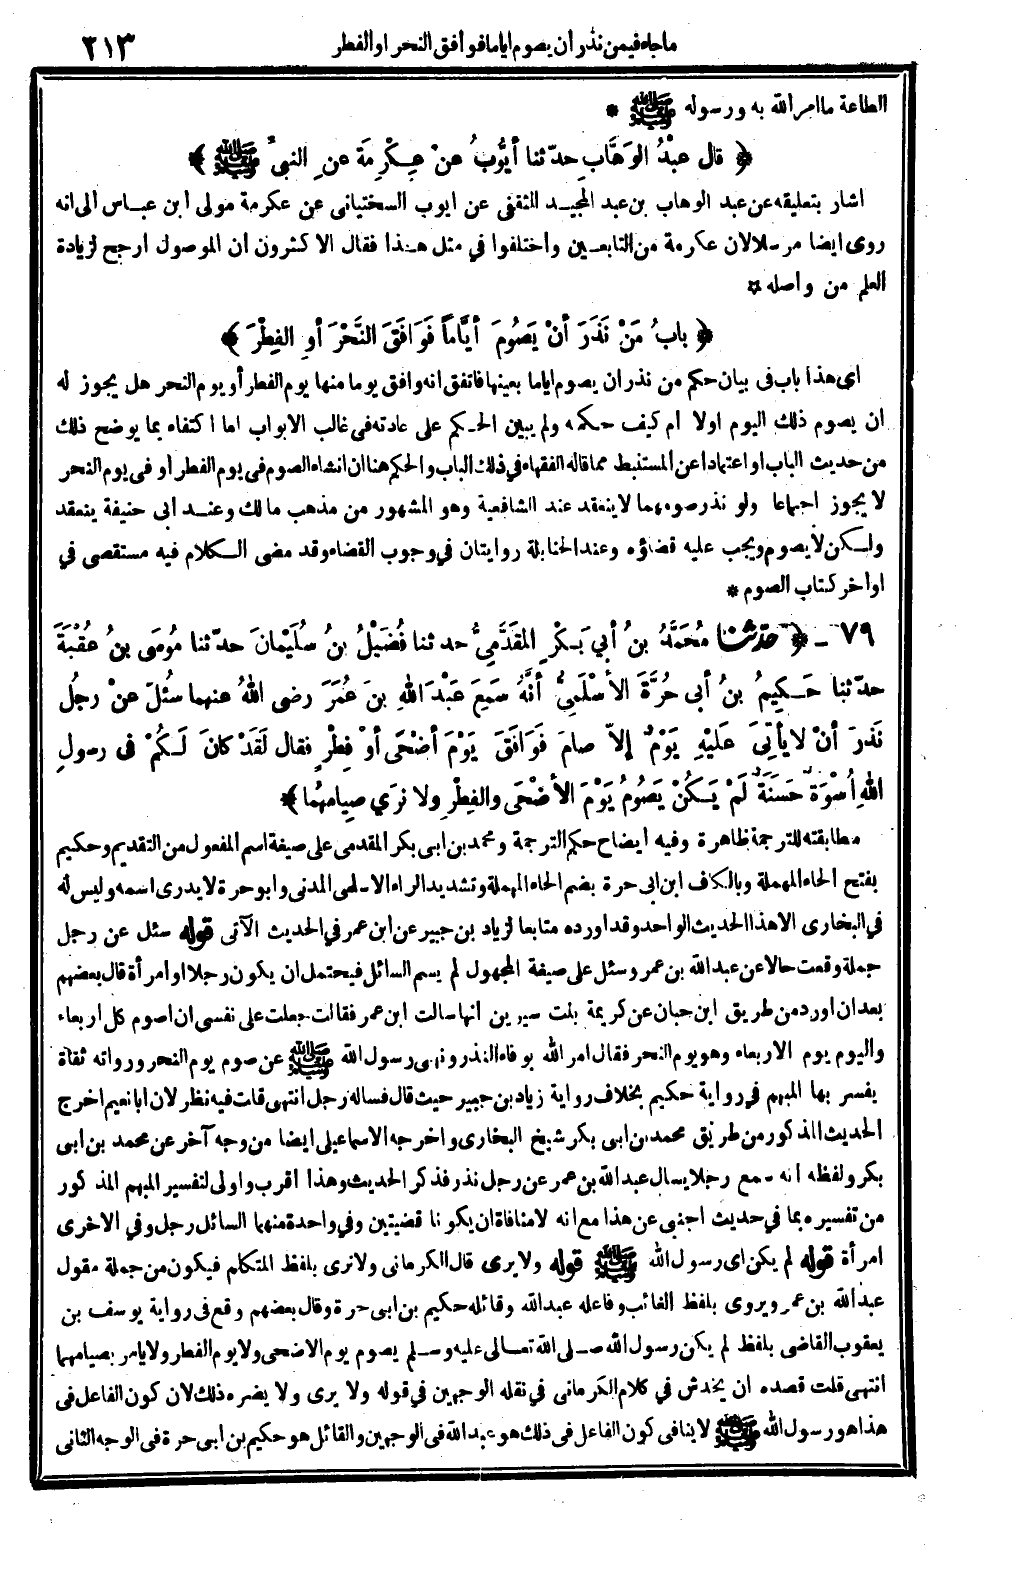 ما جاء فيمن نذر أن يصوم اياما فوافق النحر او الفطر
٢١٣
الطاعة ما امر الله به ورسوله ﷺ *
﴿ قال عبْدُ الوَهَّابِ حدّثنا أيُّوبُ عنْ عِكْرِمَةَ عنِ النبيِّ ﷺ ﴾
اشار بتعليقه عن عبد الوهاب بن عبد المجيد الثقفي عن ايوب السختياني عن عكرمة مولى ابن عباس الى انه
روى ايضا مرسلا لان عكرمة من التابعين واختلفوا في مثل هذا فقال الاكثرون ان الموصول ارجح لزيادة
العلم من واصله *
﴿ بابُ مَنْ نَذَرَ أنْ يَصُومَ أيَّاماً فَوَافَقَ النَّحْرَ أوِ الفِطْرَ ﴾
اى هذا باب فى بيان حكم من نذر ان يصوم اياما بعينها فاتفق انه وافق يوما منها يوم الفطر أو يوم النحر هل يجوز له
ان يصوم ذلك اليوم اولا ام كيف حكمه ولم يبين الحكم على عادته فى غالب الابواب اما اكتفاء بما يوضح ذلك
من حديث الباب او اعتمادا عن المستنبط مما قاله الفقهاء في ذلك الباب والحكم هنا ان انشاء الصوم فى يوم الفطر أو فى يوم النحر
لا يجوز اجماعا ولو نذر صومهما لا ينعقد عند الشافعية وهو المشهور من مذهب مالك وعند ابى حنيفة ينعقد
ولكن لا يصوم ويجب عليه قضاؤه وعند الحنابلة روايتان في وجوب القضاء وقد مضى الكلام فيه مستقصى في
اواخر كتاب الصوم *
٧٩ - ﴿ حدّثنا مُحَمَّدُ بنُ أبي بَكْرٍ المُقَدَّمِيُّ حدثنا فُضَيْلُ بنُ سُلَيْمانَ حدّثنا مُوسَى بنُ عُقْبَةَ
حدّثنا حَكِيمُ بنُ أبى حُرَّةَ الأسْلَمِيُّ أنَّهُ سَمِعَ عَبْدَ اللهِ بنَ عُمَرَ رضى اللهُ عنهما سُئلَ عنْ رجُلٍ
نَذَرَ أنْ لا يأتِىَ عَلَيْهِ يَوْمٌ إلاّ صامَ فَوَافَقَ يَوْمَ أضْحَى أوْ فِطْرٍ فقال لَقَدْ كانَ لَكُمْ فى رسولِ
اللهِ أُسْوَةٌ حَسَنَةٌ لَمْ يَكُنْ يَصُومُ يَوْمَ الأضْحَى والفِطْرِ ولا نَرَي صِيامَهُما ﴾
مطابقته للترجمة ظاهرة وفيه ايضاح حكم الترجمة ومحمد بن ابى بكر المقدمى على صيغة اسم المفعول من التقديم وحكيم
بفتح الحاء المهملة وبالكاف ابن ابى حرة بضم الحاء المهملة وتشديد الراء الاسلمى المدنى وابو حرة لا يدرى اسمه وليس له
في البخارى الا هذا الحديث الواحد وقد اورده متابعا لزياد بن جبير عن ابن عمر في الحديث الآتى قوله سئل عن رجل
جملة وقعت حالا عن عبد الله بن عمر وسئل على صيغة المجهول لم يسم السائل فيحتمل ان يكون رجلا او امرأة قال بعضهم
بعد ان اورد من طريق ابن حبان عن كريمة بنت سيرين انها سالت ابن عمر فقالت جعلت على نفسى ان اصوم كل اربعاء
واليوم يوم الاربعاء وهو يوم النحر فقال امر الله بوفاء النذر ونهى رسول الله ﷺ عن صوم يوم النحر ورواته ثقاة
يفسر بها المبهم في رواية حكيم بخلاف رواية زياد بن جبير حيث قال فساله رجل انتهى قلت فيه نظر لان ابا نعيم اخرج
الحديث المذكور من طريق محمد بن ابى بكر شيخ البخارى واخرجه الاسماعيلى ايضا من وجه آخر عن محمد بن ابى
بكر ولفظه انه سمع رجلا يسال عبد الله بن عمر عن رجل نذر فذكر الحديث وهذا اقرب واولى لتفسير المبهم المذكور
من تفسيره بما في حديث اجنبى عن هذا مع انه لا منافاة ان يكونا قضيتين وفي واحدة منهما السائل رجل وفي الاخرى
امرأة قوله لم يكن اى رسول الله ﷺ قوله ولا يرى قال الكرمانى ولا نرى بلفظ المتكلم فيكون من جملة مقول
عبد الله بن عمر ويروى بلفظ الغائب وفاعله عبد الله وقائله حكيم بن ابى حرة وقال بعضهم وقع فى رواية يوسف بن
يعقوب القاضى بلفظ لم يكن رسول الله صلى الله تعالى عليه وسلم يصوم يوم الاضحى ولا يوم الفطر ولا يامر بصيامهما
انتهى قلت قصده ان يخدش في كلام الكرمانى في نقله الوجهين في قوله ولا يرى ولا يضره ذلك لان كون الفاعل فى
هذا هو رسول الله ﷺ لا ينافى كون الفاعل فى ذلك هو عبد الله فى الوجهين والقائل هو حكيم بن ابى حرة فى الوجه الثانى